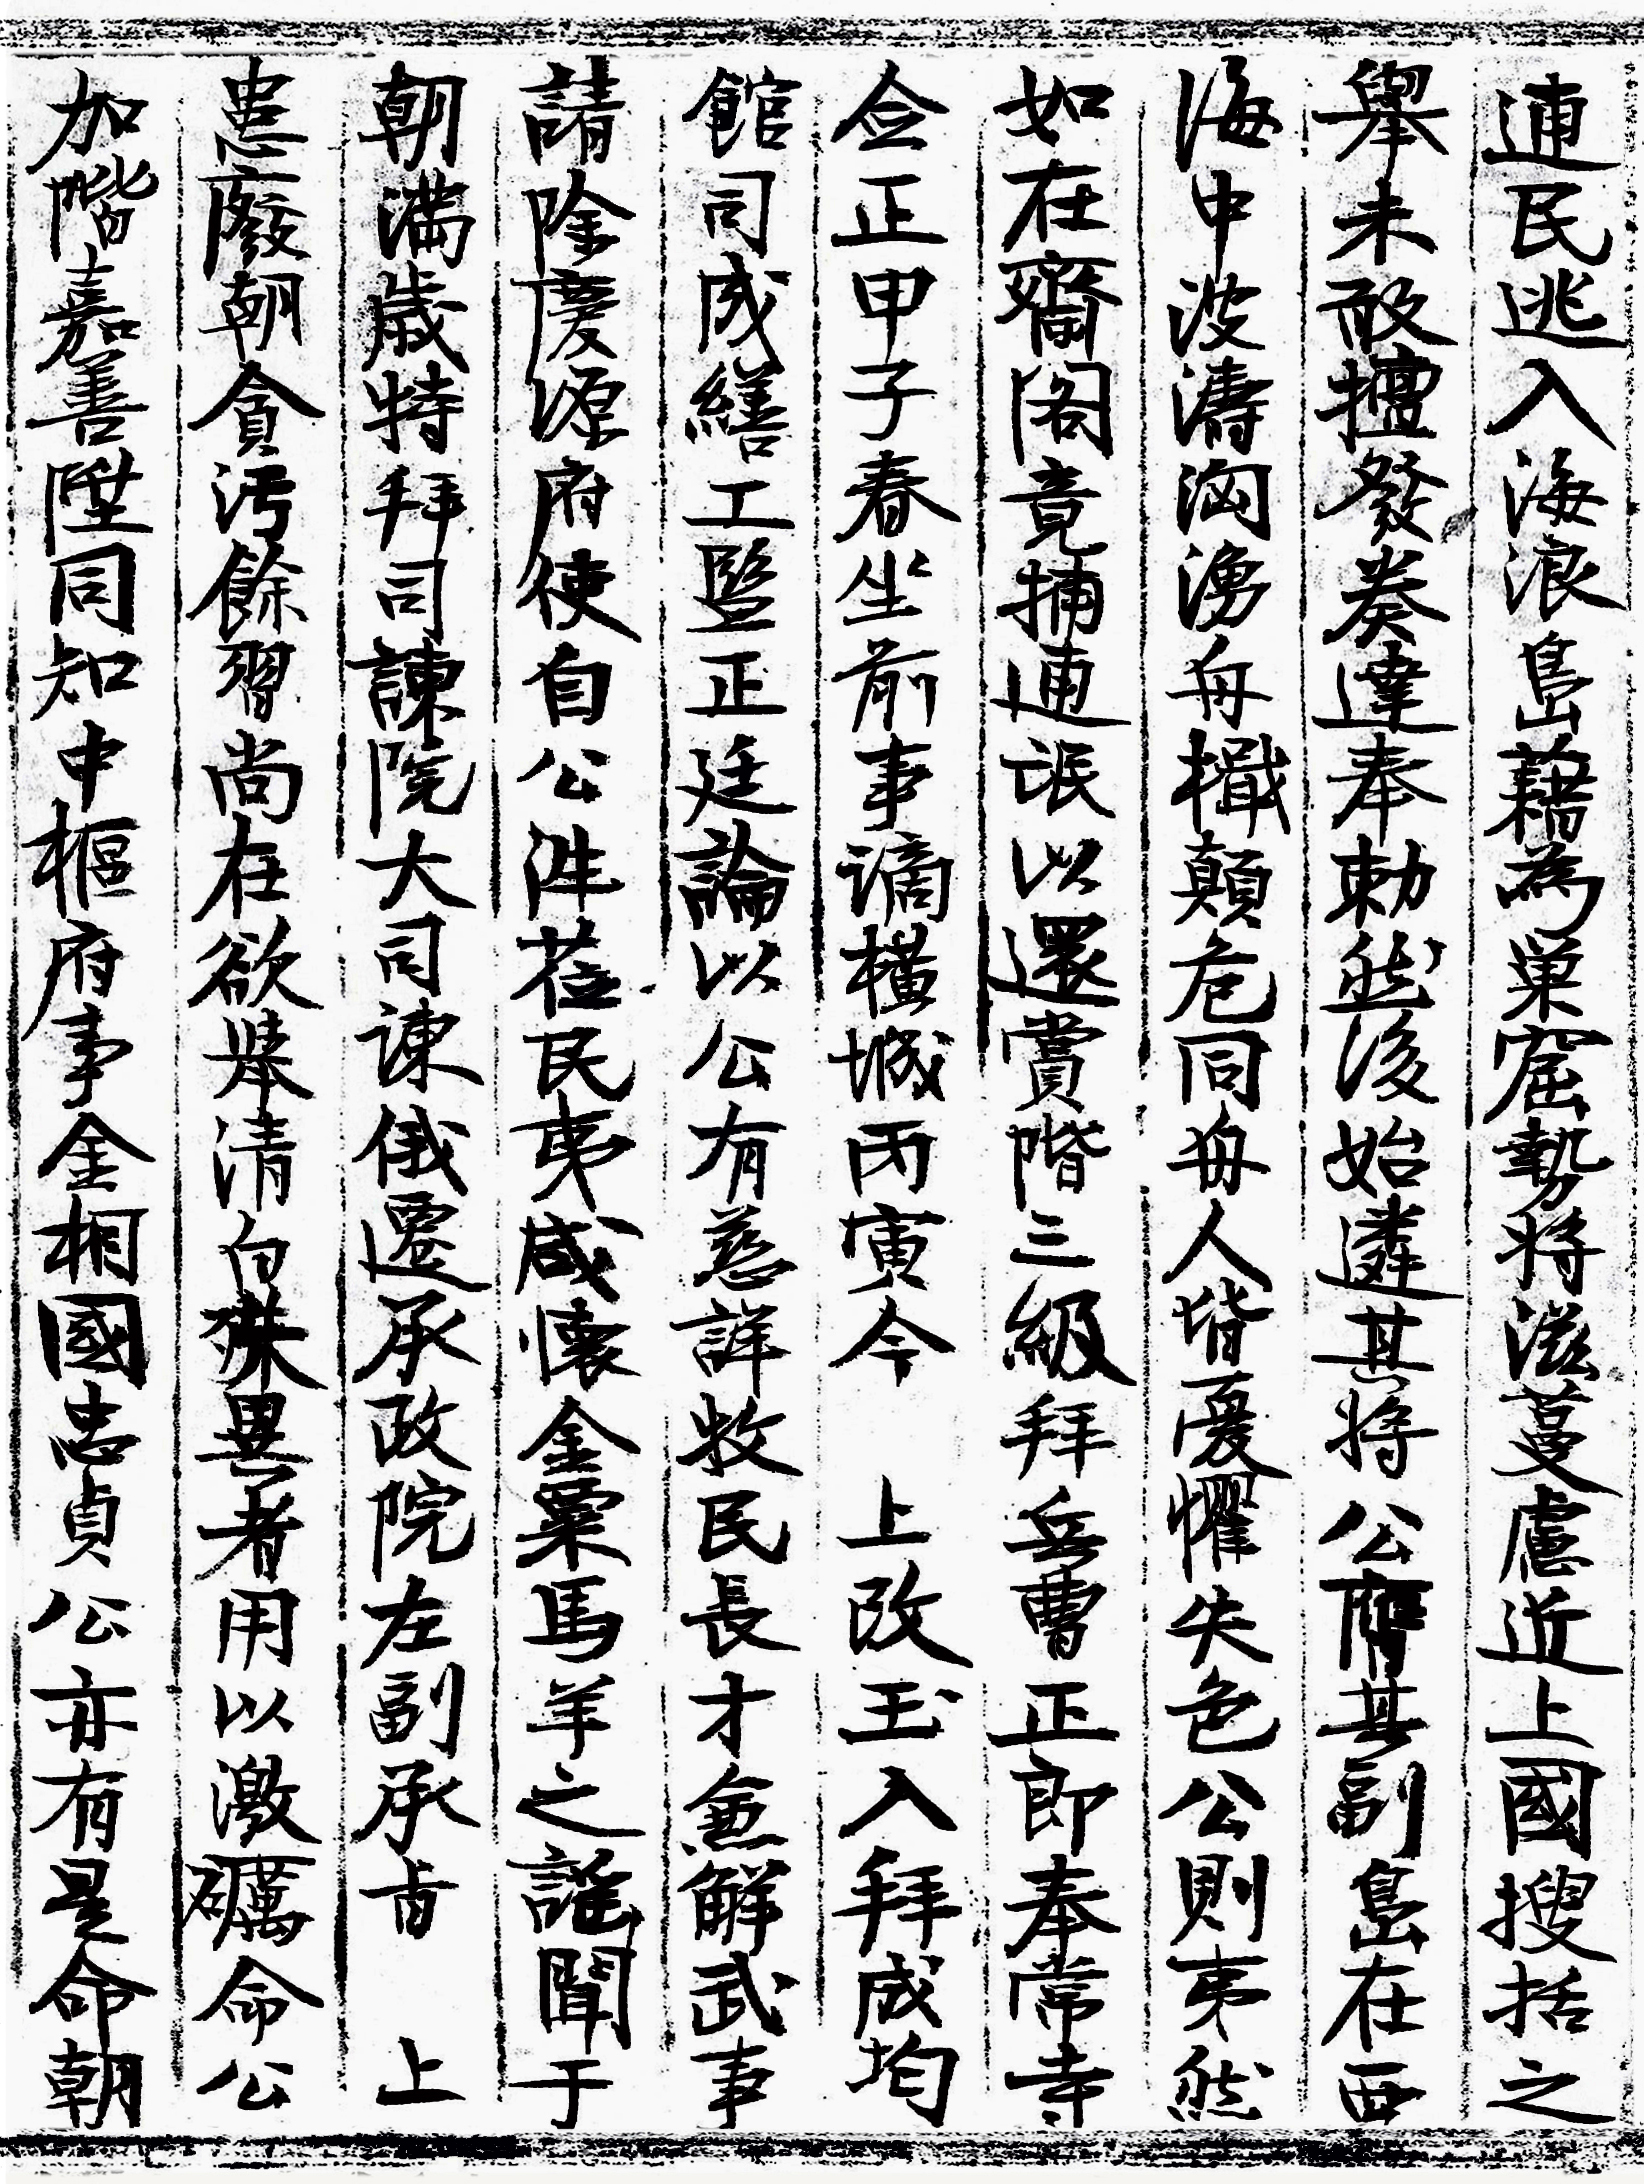 逋民逃入海浪島藉為巢窟勢將滋蔓慮近上國搜括之
舉未敢擅發奏達奉勅然後始遴其將公膺其副島在西
海中波濤洶湧舟檝顛危同舟人皆憂懼失色公則夷然
如在齋閣竟捕逋氓以還賞階三級拜兵曹正郎奉常寺
僉正甲子春坐前事謫橫城丙寅今　上改玉入拜成均
館司成繕工監正廷論以公有慈詳牧民長才兼解武事
請除慶源府使自公涖莅民夷咸懷金粟馬羊之謠聞于
朝滿歲特拜司諫院大司諫俄遷承政院左副承旨　上
患廢朝貪汚餘習尚在欲擧清白殊異者用以激礪命公
加階嘉善陞同知中樞府事金相國忠貞公亦有是命朝